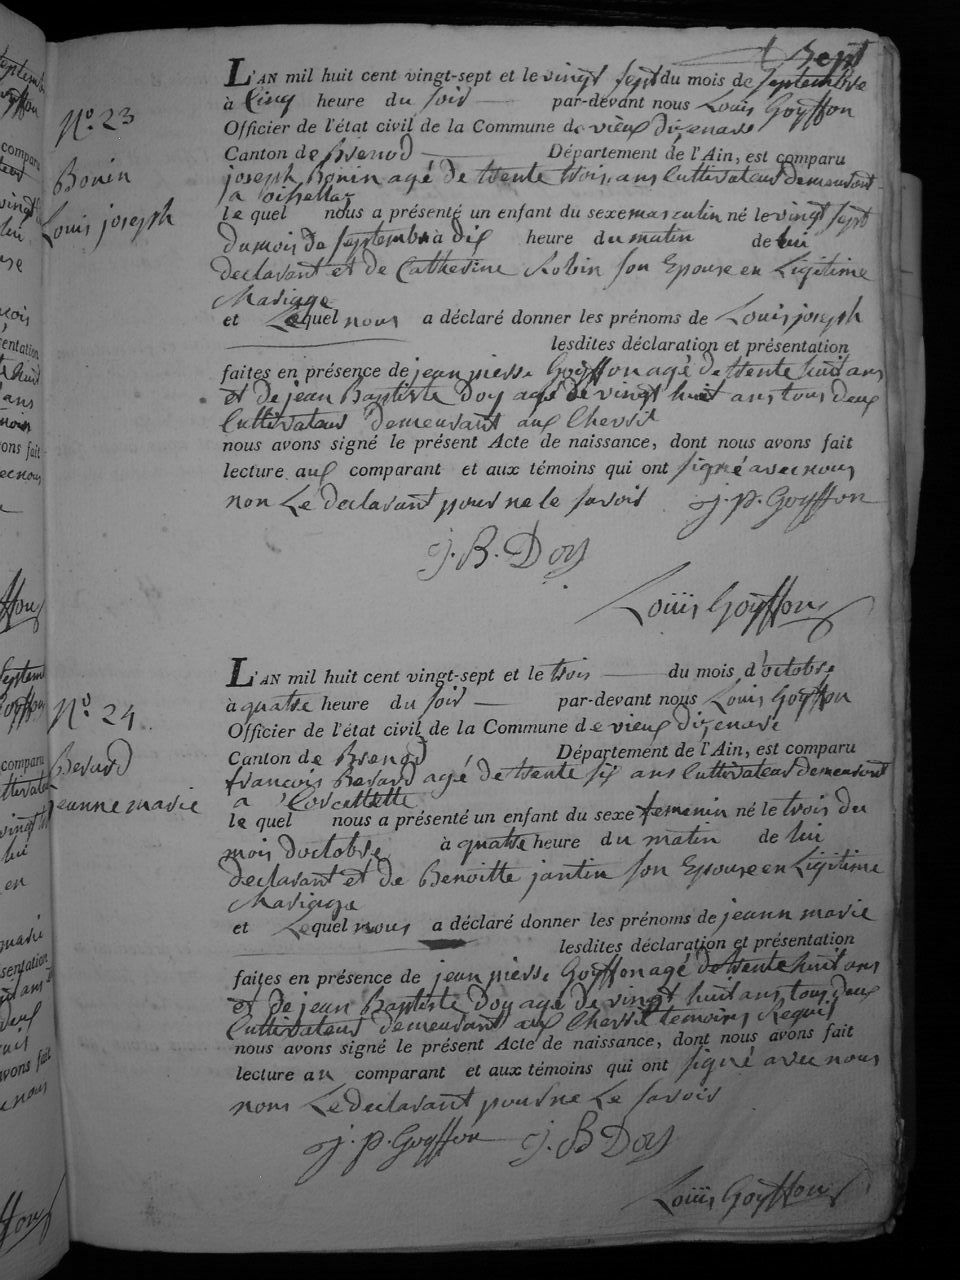 Sept
N.o 23
Bonin
Louis joseph
L'AN mil huit cent vingt-sept et le vingt sept du mois de septembre
à Cinq heure du soir par-devant nous Louis Goÿffon
Officier de l'état civil de la Commune de vieux dizenave
Canton de Brenod Département de l'Ain, est comparu
joseph Bonin agé de trente trois ans Cultivateur demeurant
a
le quel nous a présenté un enfant du sexe masculin né le vingt sept
du mois de septembre à dix heure du matin de lui
declarant et de Catherine Robin son Epouse en Ligitime
Mariage
et Lequel nous a déclaré donner les prénoms de Louis joseph
lesdites déclaration et présentation
faites en présence de jean pierre Goÿffon agé de trente huit ans
et de jean Baptiste Doy agé de vingt huit ans tous deux
Cultivateur demeurant aux Chevril
nous avons signé le présent Acte de naissance, dont nous avons fait
lecture aux comparant et aux témoins qui ont signé avec nous
non Le declarant pour ne le savoir j. p. Goÿffon
j. B. Doy
Louis Goÿffon
N.o 24
Berard
jeanne marie
L'AN mil huit cent vingt-sept et le trois du mois d'octobre
à quatre heure du soir par-devant nous Louis Goÿffon
Officier de l'état civil de la Commune de vieux dizenave
Canton de Brenod Département de l'Ain, est comparu
françois Berard agé de trente six ans Cultivateur demeurant
a Corcellette
le quel nous a présenté un enfant du sexe femenin né le trois du
mois doctobre à quatre heure du matin de lui
declarant et de Benoitte jantin son Epouse en Ligitime
Mariage
et Lequel nous a déclaré donner les prénoms de jeann marie
lesdites déclaration et présentation
faites en présence de jean pierre Goÿffon agé de trente huit ans
et de jean Baptiste Doy agé de vingt huit ans tous deux
Cultivateur demeurant aux Chevril temoins Requis
nous avons signé le présent Acte de naissance, dont nous avons fait
lecture au comparant et aux témoins qui ont signé avec nous
nom Le declarant pour ne Le savoir
j. p. Goyffon j. B Doy
Louis Goÿffon